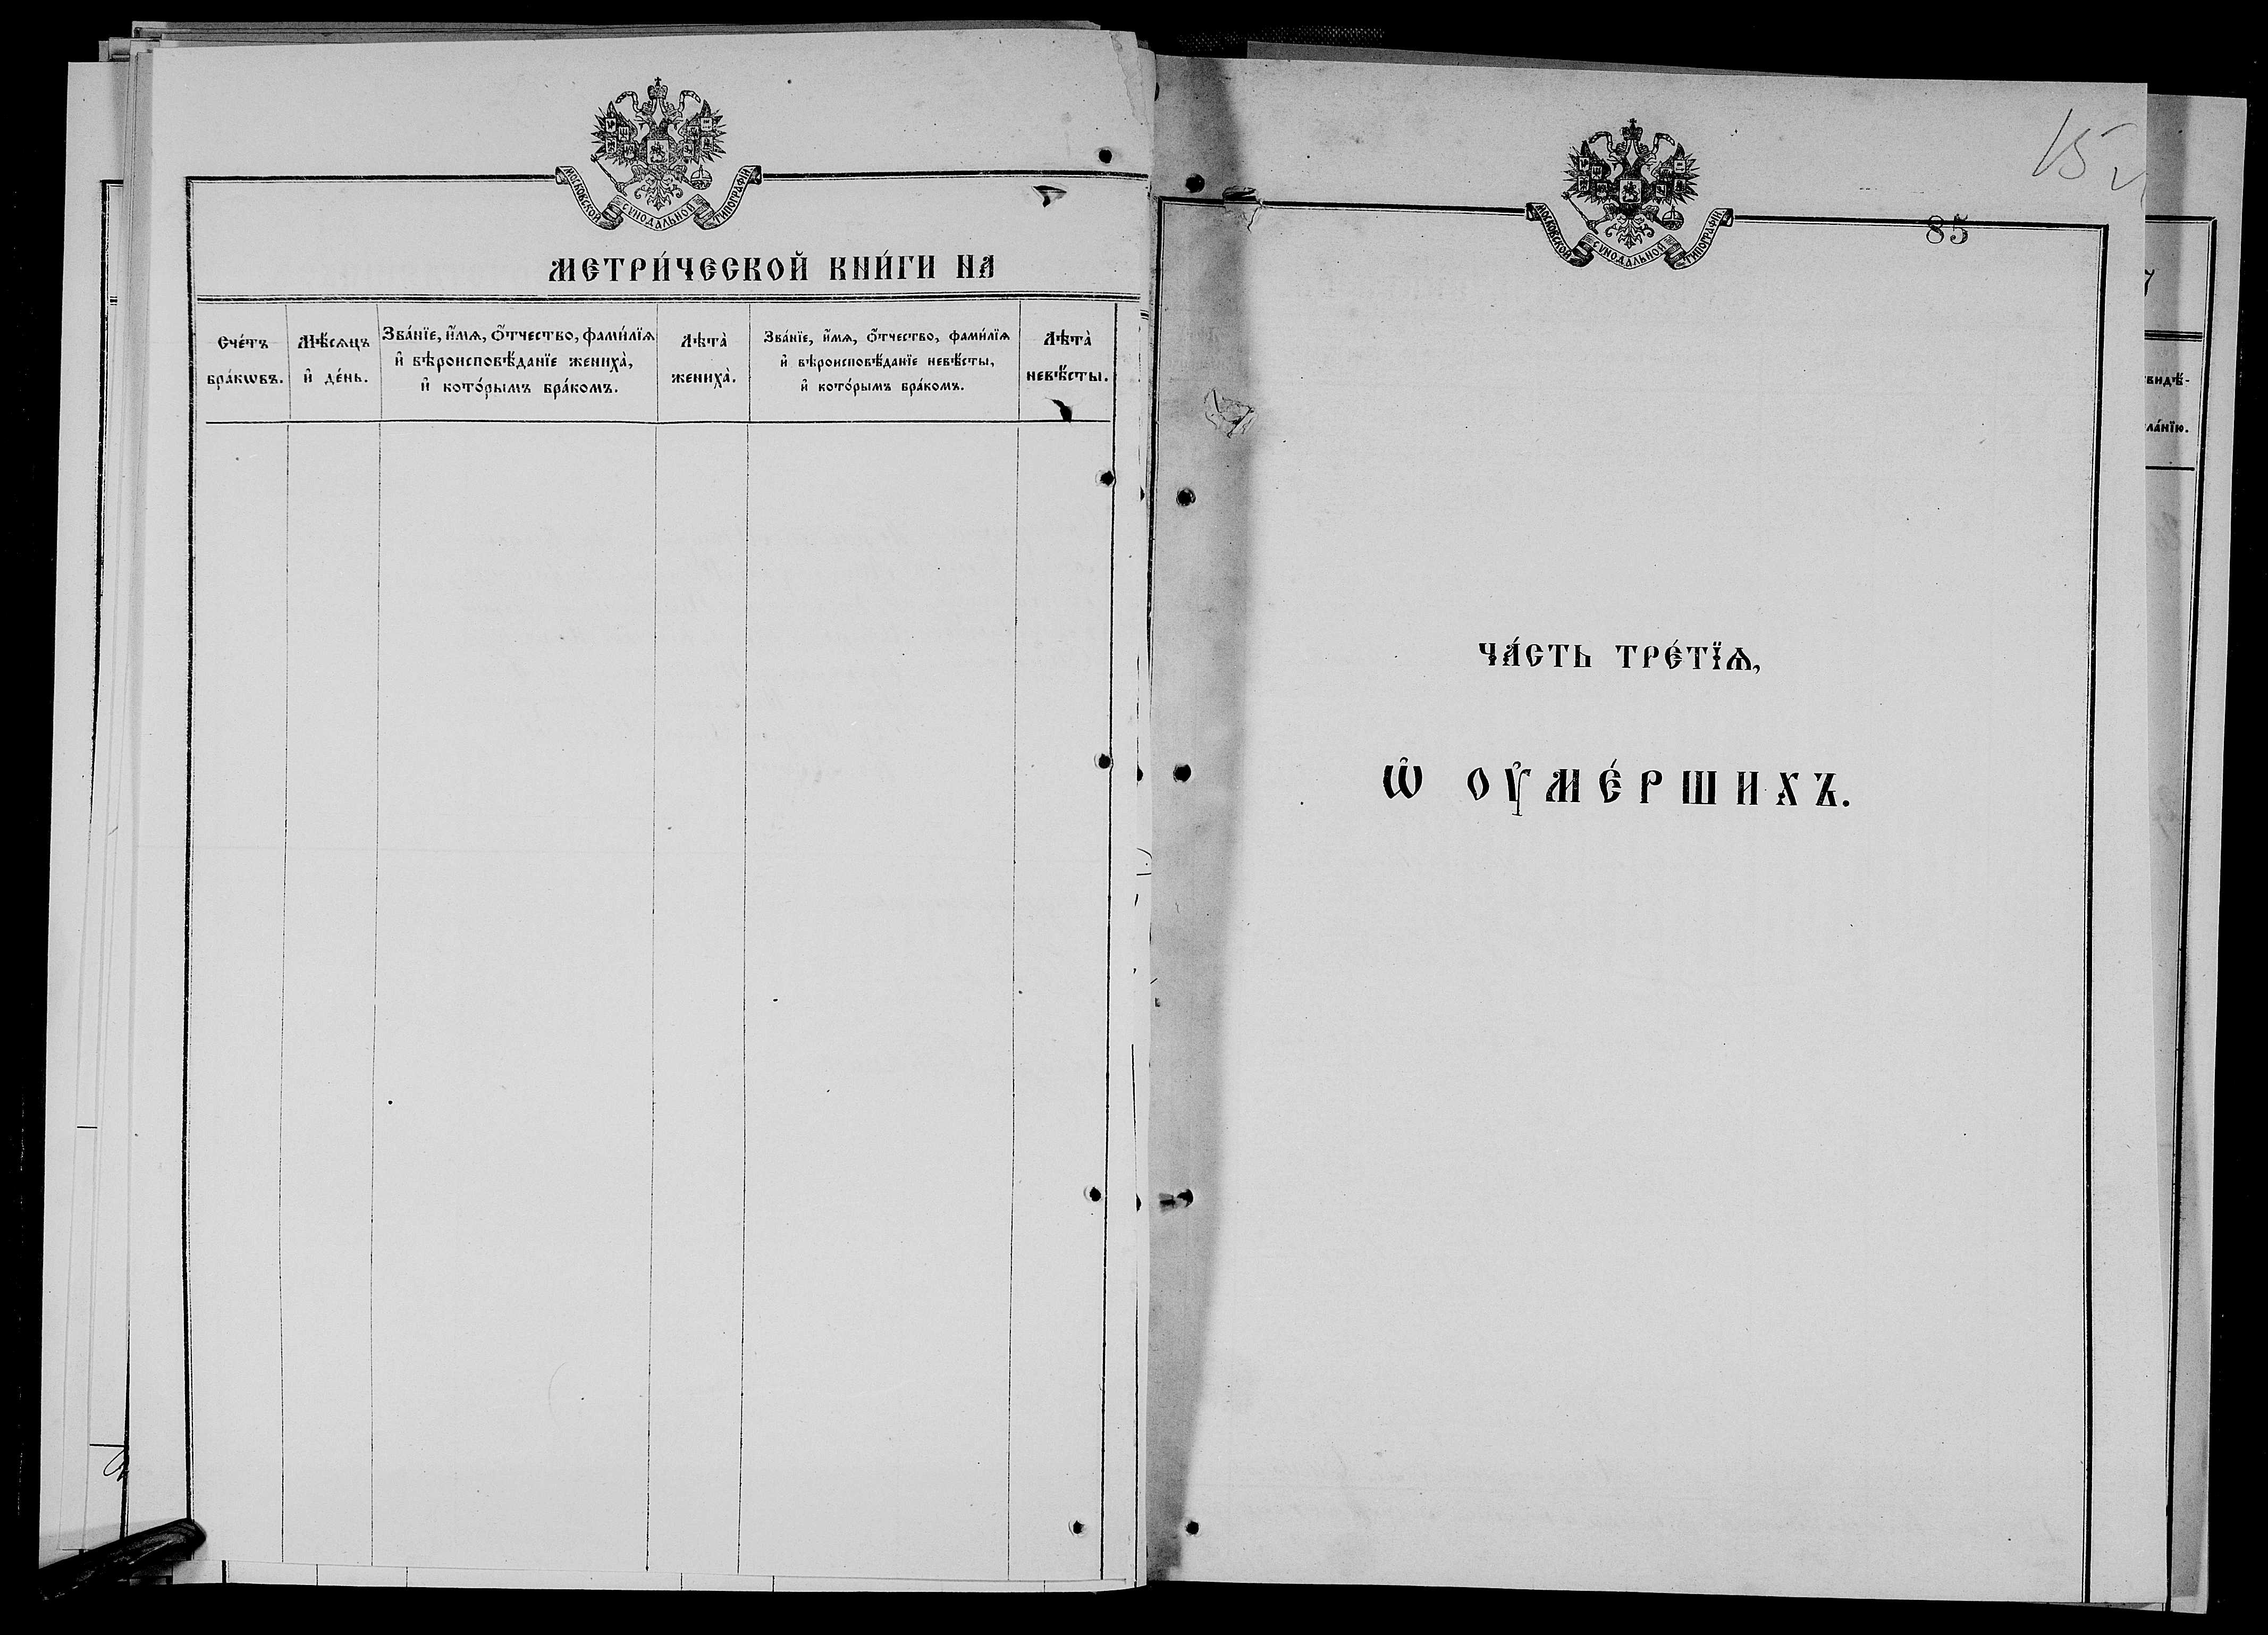 МОСКОВСКОЙ СѴНОДАЛЬНОЙ ТИПОГРАФІИ
МЕТРИ́ЧЕСКОЙ КНИ́ГИ НА
Сче́тъ бра́кѡвъ.
Мѣ́сѧцъ и҆ де́нь.
Зва́нїе, и҆́мѧ, ѻ҆́тчество, фами́лїѧ
и҆ вѣроисповѣ́данїе жениха̀,
и҆ кото́рымъ бра́комъ.
Лѣта̀ жениха̀.
Зва́нїе, и҆́мѧ, ѻ҆́тчество, фами́лїѧ
и҆ вѣроисповѣ́данїе невѣ́сты,
и҆ кото́рымъ бра́комъ.
Лѣта̀ невѣ́сты.
15
МОСКОВСКОЙ СѴНОДАЛЬНОЙ ТИПОГРАФІИ
85
ЧА́СТЬ ТРЕ́ТЇѦ,
Ѡ҆ ОУ҆МЕ́РШИХЪ.
видѣ́-
ла́нїю.